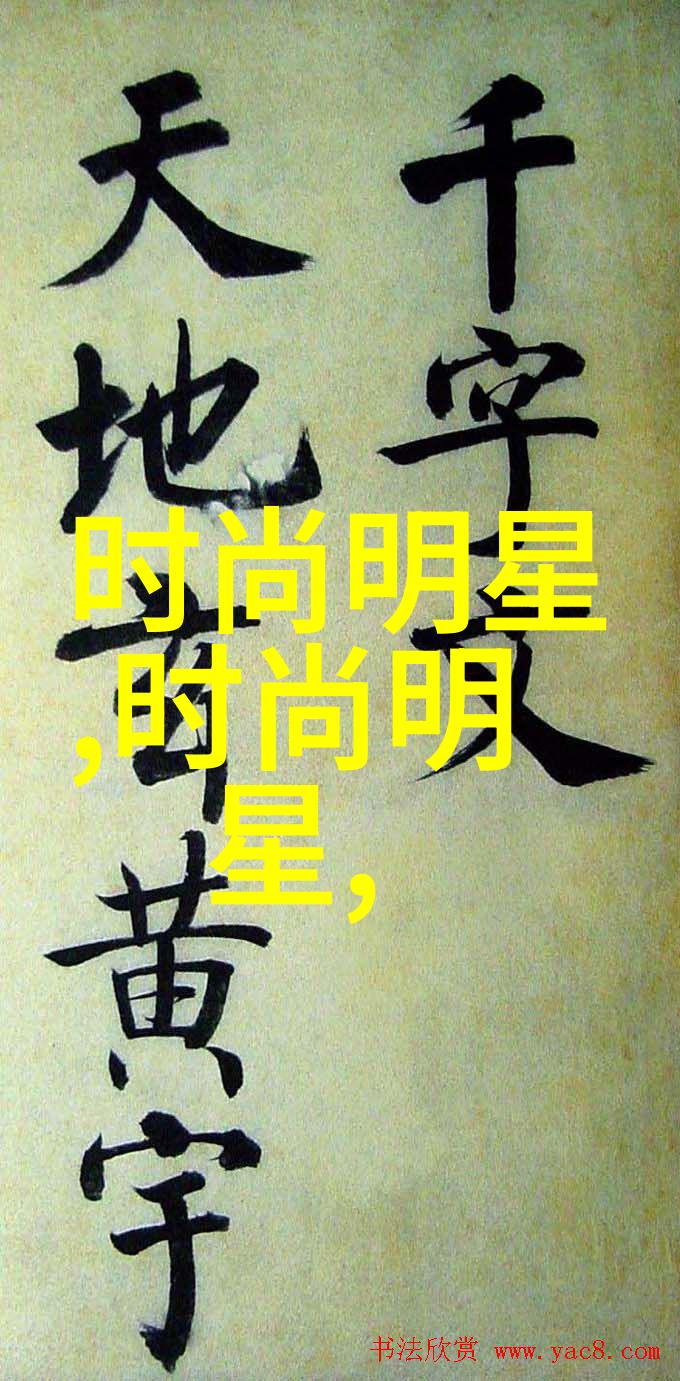 千字文
天地黄宇
时尚明星
,时尚明
星,
书法欣赏 www.yac8.com